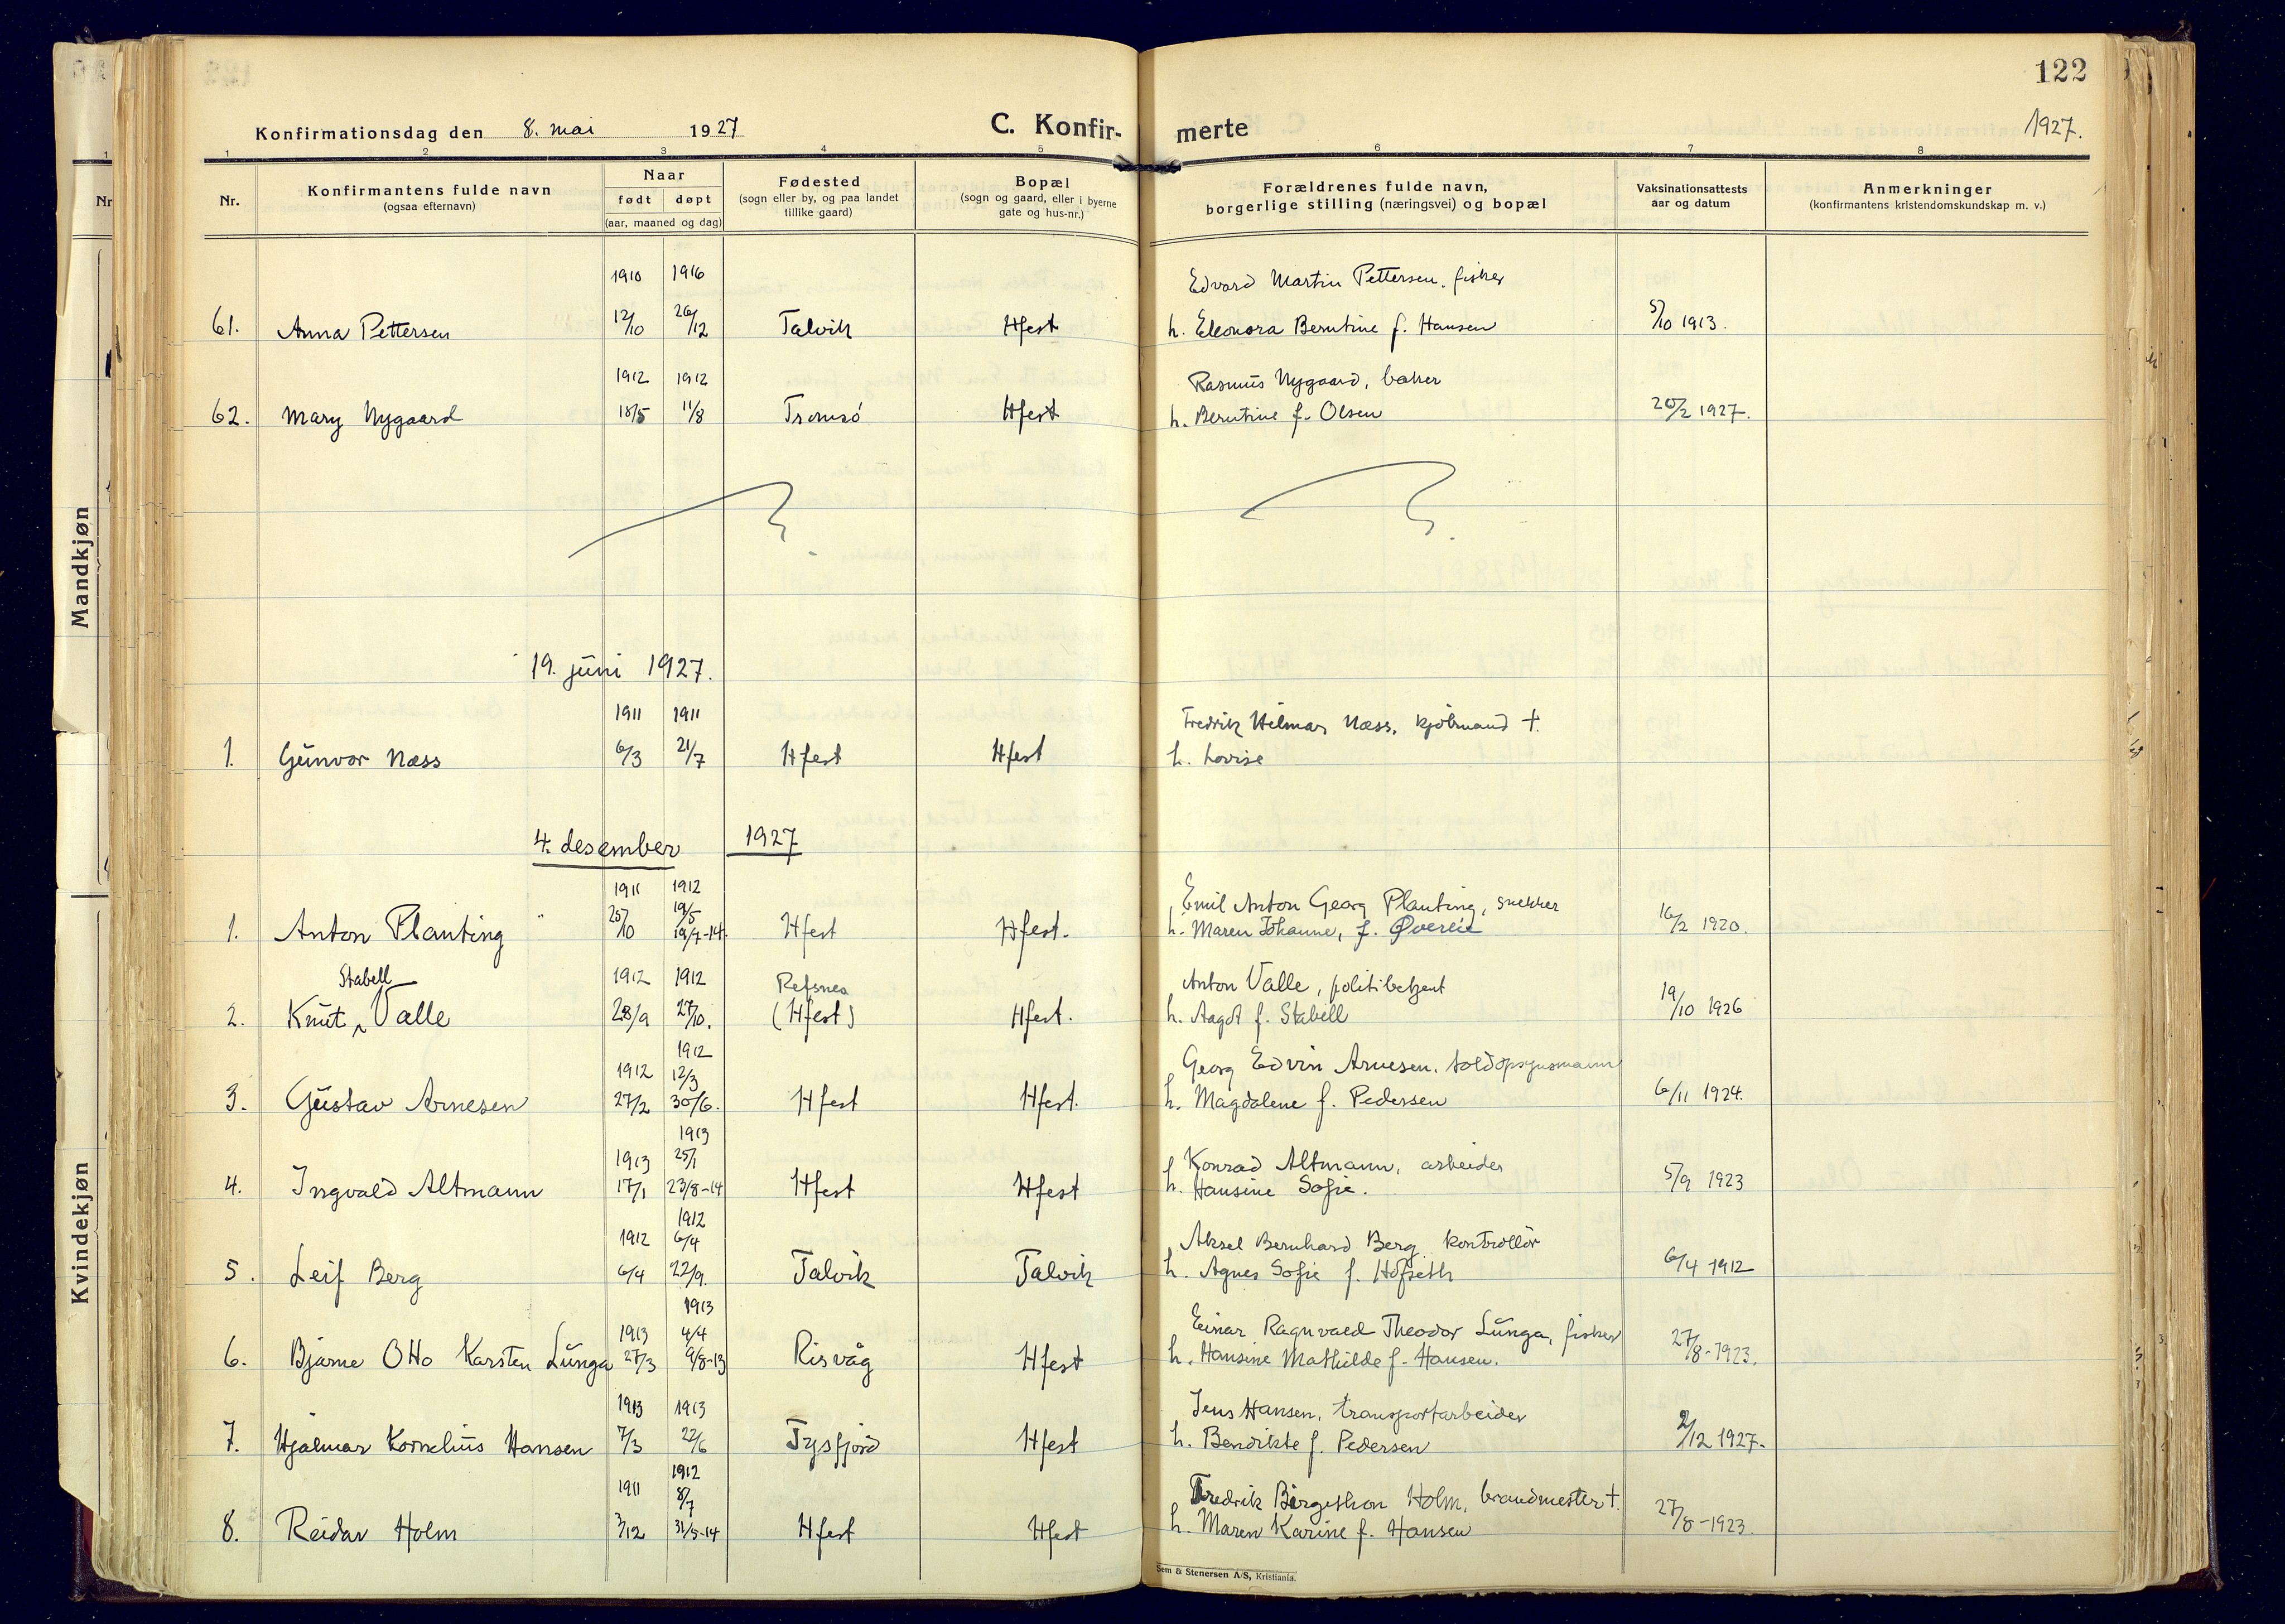 122
Konfirmationsdag den 8. mai 1927
C. Konfirmerte
1927.
1 2 3 4 5 6 7 8
Nr.
Konfirmantens fulde navn
(ogsaa efternavn)
Naar
født døpt
(aar, maaned og dag)
Fødested
(sogn eller by, og paa landet
tillike gaard)
Bopæl
(sogn og gaard, eller i byerne
gate og hus-nr.)
Forældrenes fulde navn,
borgerlige stilling (næringsvei) og bopæl
Vaksinationsattests
aar og datum
Anmerkninger
(konfirmantens kristendomskundskap m. v.)
1910 1916 Edvard Martin Pettersen. fisker
61. Anna Pettersen 12/10 26/12 Talvik Hfest h. Eleonora Berntine f. Hansen 5/10 1913.
1912 1912 Rasmus Nygaard, baker
62. Mary Nygaard 18/5 11/8 Tromsö Hfest h. Berntine f. Olsen 20/2 1927.
19. juni 1927.
1911 1911 Fredrik Hilmar Næss, kjöbmand †.
1. Gunvor Næss 6/3 21/7 Hfest Hfest h. Lovise
4. desember 1927
1911 1912 Emil Anton Georg Planting, snekker
19/5
1. Anton Planting 25/10 19/7-14. Hfest Hfest. h. Maren Johanne, f. Övereie 16/2 1920.
Stabell 1912 1912 Refsnes Anton Valle, politibetjent
2. Knut Valle 28/9 27/10. (Hfest) Hfest. h. Aagot f. Stabell 19/10 1926
1912
1912 12/3 Georg Edvin Arnesen. toldopsynsmann
3. Gustav Arnesen 27/2 30/6. Hfest Hfest. h. Magdalene f. Pedersen 6/11 1924.
1913
1913 25/1 Konrad Altmann, arbeider
4. Ingvald Altmann 17/1 23/8-14 Hfest Hfest h. Hansine Sofie. 5/9 1923
1912
1912 6/4 Aksel Bernhard Berg kontrollör
5. Leif Berg 6/4 22/9. Talvik Talvik h. Agnes Sofie f. Hofseth 6/4 1912
1913
1913 4/4 Einar Ragnvald Theodor Lunga, fisker
6. Bjarne Otto Karsten Lunga 27/3 9/8-13 Risvåg Hfest h. Hansine Mathilde f. Hansen. 27/8-1923.
1913 1913 Jens Hansen, transportarbeider
7. Hjalmar Kornelius Hansen 7/3 22/6 Tysfjord Hfest h. Bendikte f. Pedersen 2/12 1927.
1912
1911 8/7 Fredrik Bergethon Holm, brandmester †.
8. Reidar Holm 3/12 31/5-14 Hfest Hfest h. Maren Karine f. Hansen 27/8-1923.
Sem & Stenersen A/S, Kristiania.
Mandkjøn
Kvindekjøn
Nr